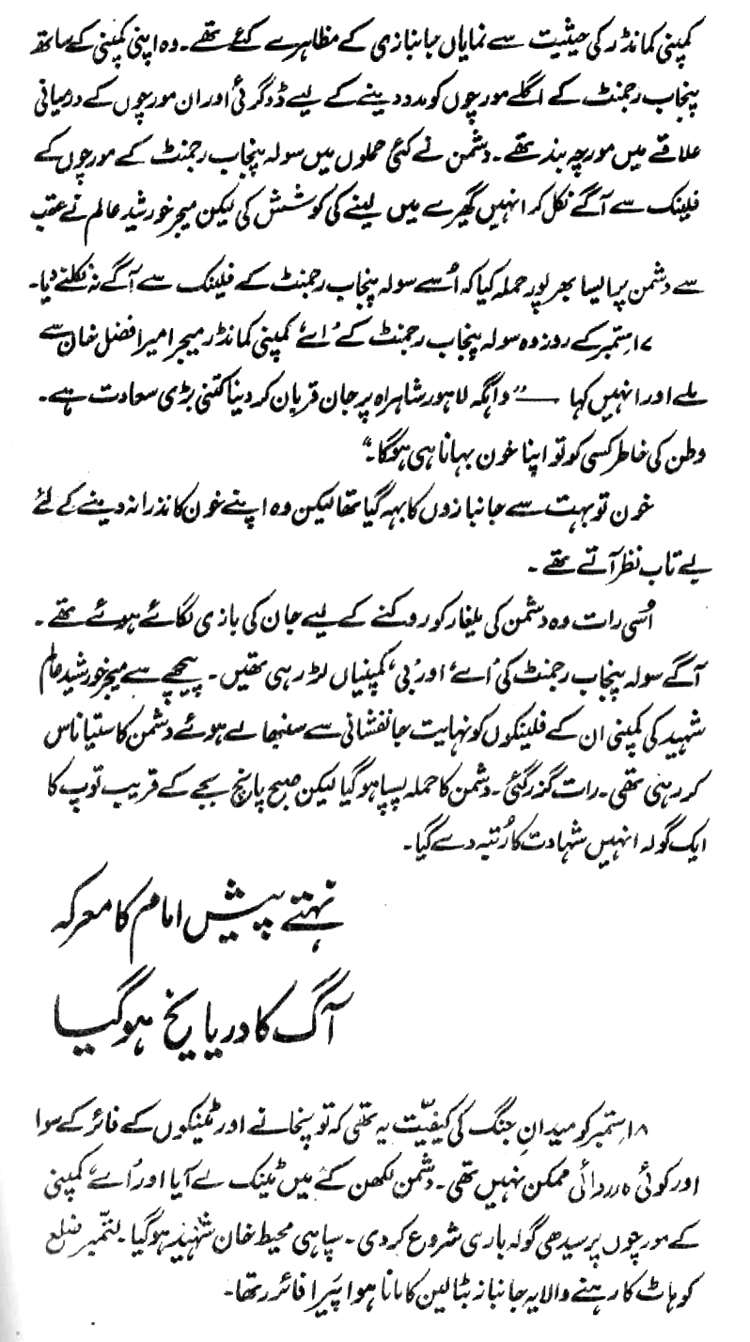 کمپنی کمانڈر کی حیثیت سے نمایاں جانبازی کے مظاہرے کئے تھے۔ وہ اپنی کمپنی کے ساتھ
پنجاب رجمنٹ کے اگلے مورچوں کو مدد دینے کے لیے ڈوگرئی اور ان مورچوں کے درمیانی
علاقے میں مورچہ بند تھے۔ دشمن نے کئی حملوں میں سولہ پنجاب رجمنٹ کے مورچوں کے
فلینک سے آگے نکل کر انہیں گھیرے میں لینے کی کوشش کی لیکن میجر خورشید عالم نے عقب
سے دشمن پر ایسا بھرپور حملہ کیا کہ اُسے سولہ پنجاب رجمنٹ کے فلینک سے آگے نہ نکلنے دیا۔
۱۷ ستمبر کے روز وہ سولہ پنجاب رجمنٹ کے ’اے‘ کمپنی کمانڈر میجر امیر افضل خان سے
ملے اور انہیں کہا —— ”واہگہ لاہور شاہراہ پر جان قربان کر دینا کتنی بڑی سعادت ہے۔
وطن کی خاطر کسی کو تو اپنا خون بہانا ہی ہوگا۔“
خون تو بہت سے جانبازوں کا بہہ گیا تھا لیکن وہ اپنے خون کا نذرانہ دینے کے لئے
بے تاب نظر آتے تھے۔
اُسی رات وہ دشمن کی یلغار کو روکنے کے لیے جان کی بازی لگائے ہوئے تھے۔
آگے سولہ پنجاب رجمنٹ کی ’اے‘ اور ’بی‘ کمپنیاں لڑ رہی تھیں۔ پیچھے سے میجر خورشید عالم
شہید کی کمپنی ان کے فلینکوں کو نہایت جانفشانی سے سنبھالے ہوئے دشمن کا ستیاناس
کر رہی تھی۔ رات گذر گئی۔ دشمن کا حملہ پسپا ہو گیا لیکن صبح پانچ بجے کے قریب توپ کا
ایک گولہ انہیں شہادت کا رُتبہ دے گیا۔
نہتے پیش امام کا معرکہ
آگ کا دریا یخ ہو گیا
۱۸ ستمبر کو میدانِ جنگ کی کیفیّت یہ تھی کہ توپخانے اور ٹینکوں کے فائر کے سوا
اور کوئی کارروائی ممکن نہیں تھی۔ دشمن لکھن کے میں ٹینک لے آیا اور ’اے‘ کمپنی
کے مورچوں پر سیدھی گولہ باری شروع کر دی۔ سپاہی محیط خان شہید ہو گیا۔ ضلع
کوہاٹ کا رہنے والا یہ جانباز بٹالین کا مانا ہوا فائرر تھا۔